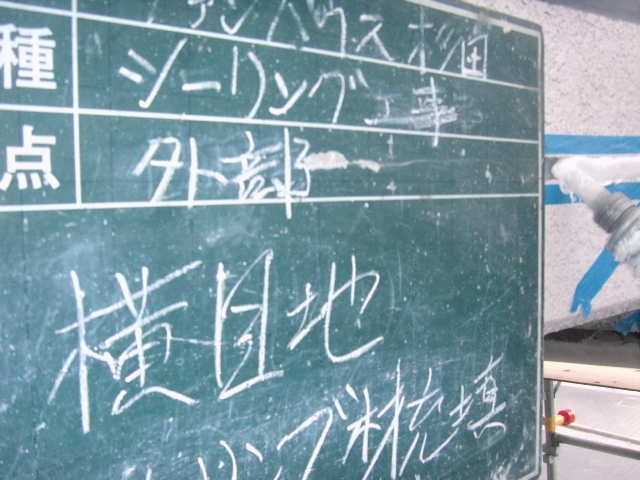 ァンハウス杉田
種 シーリング工事
点 外部
横目地
リング材充填